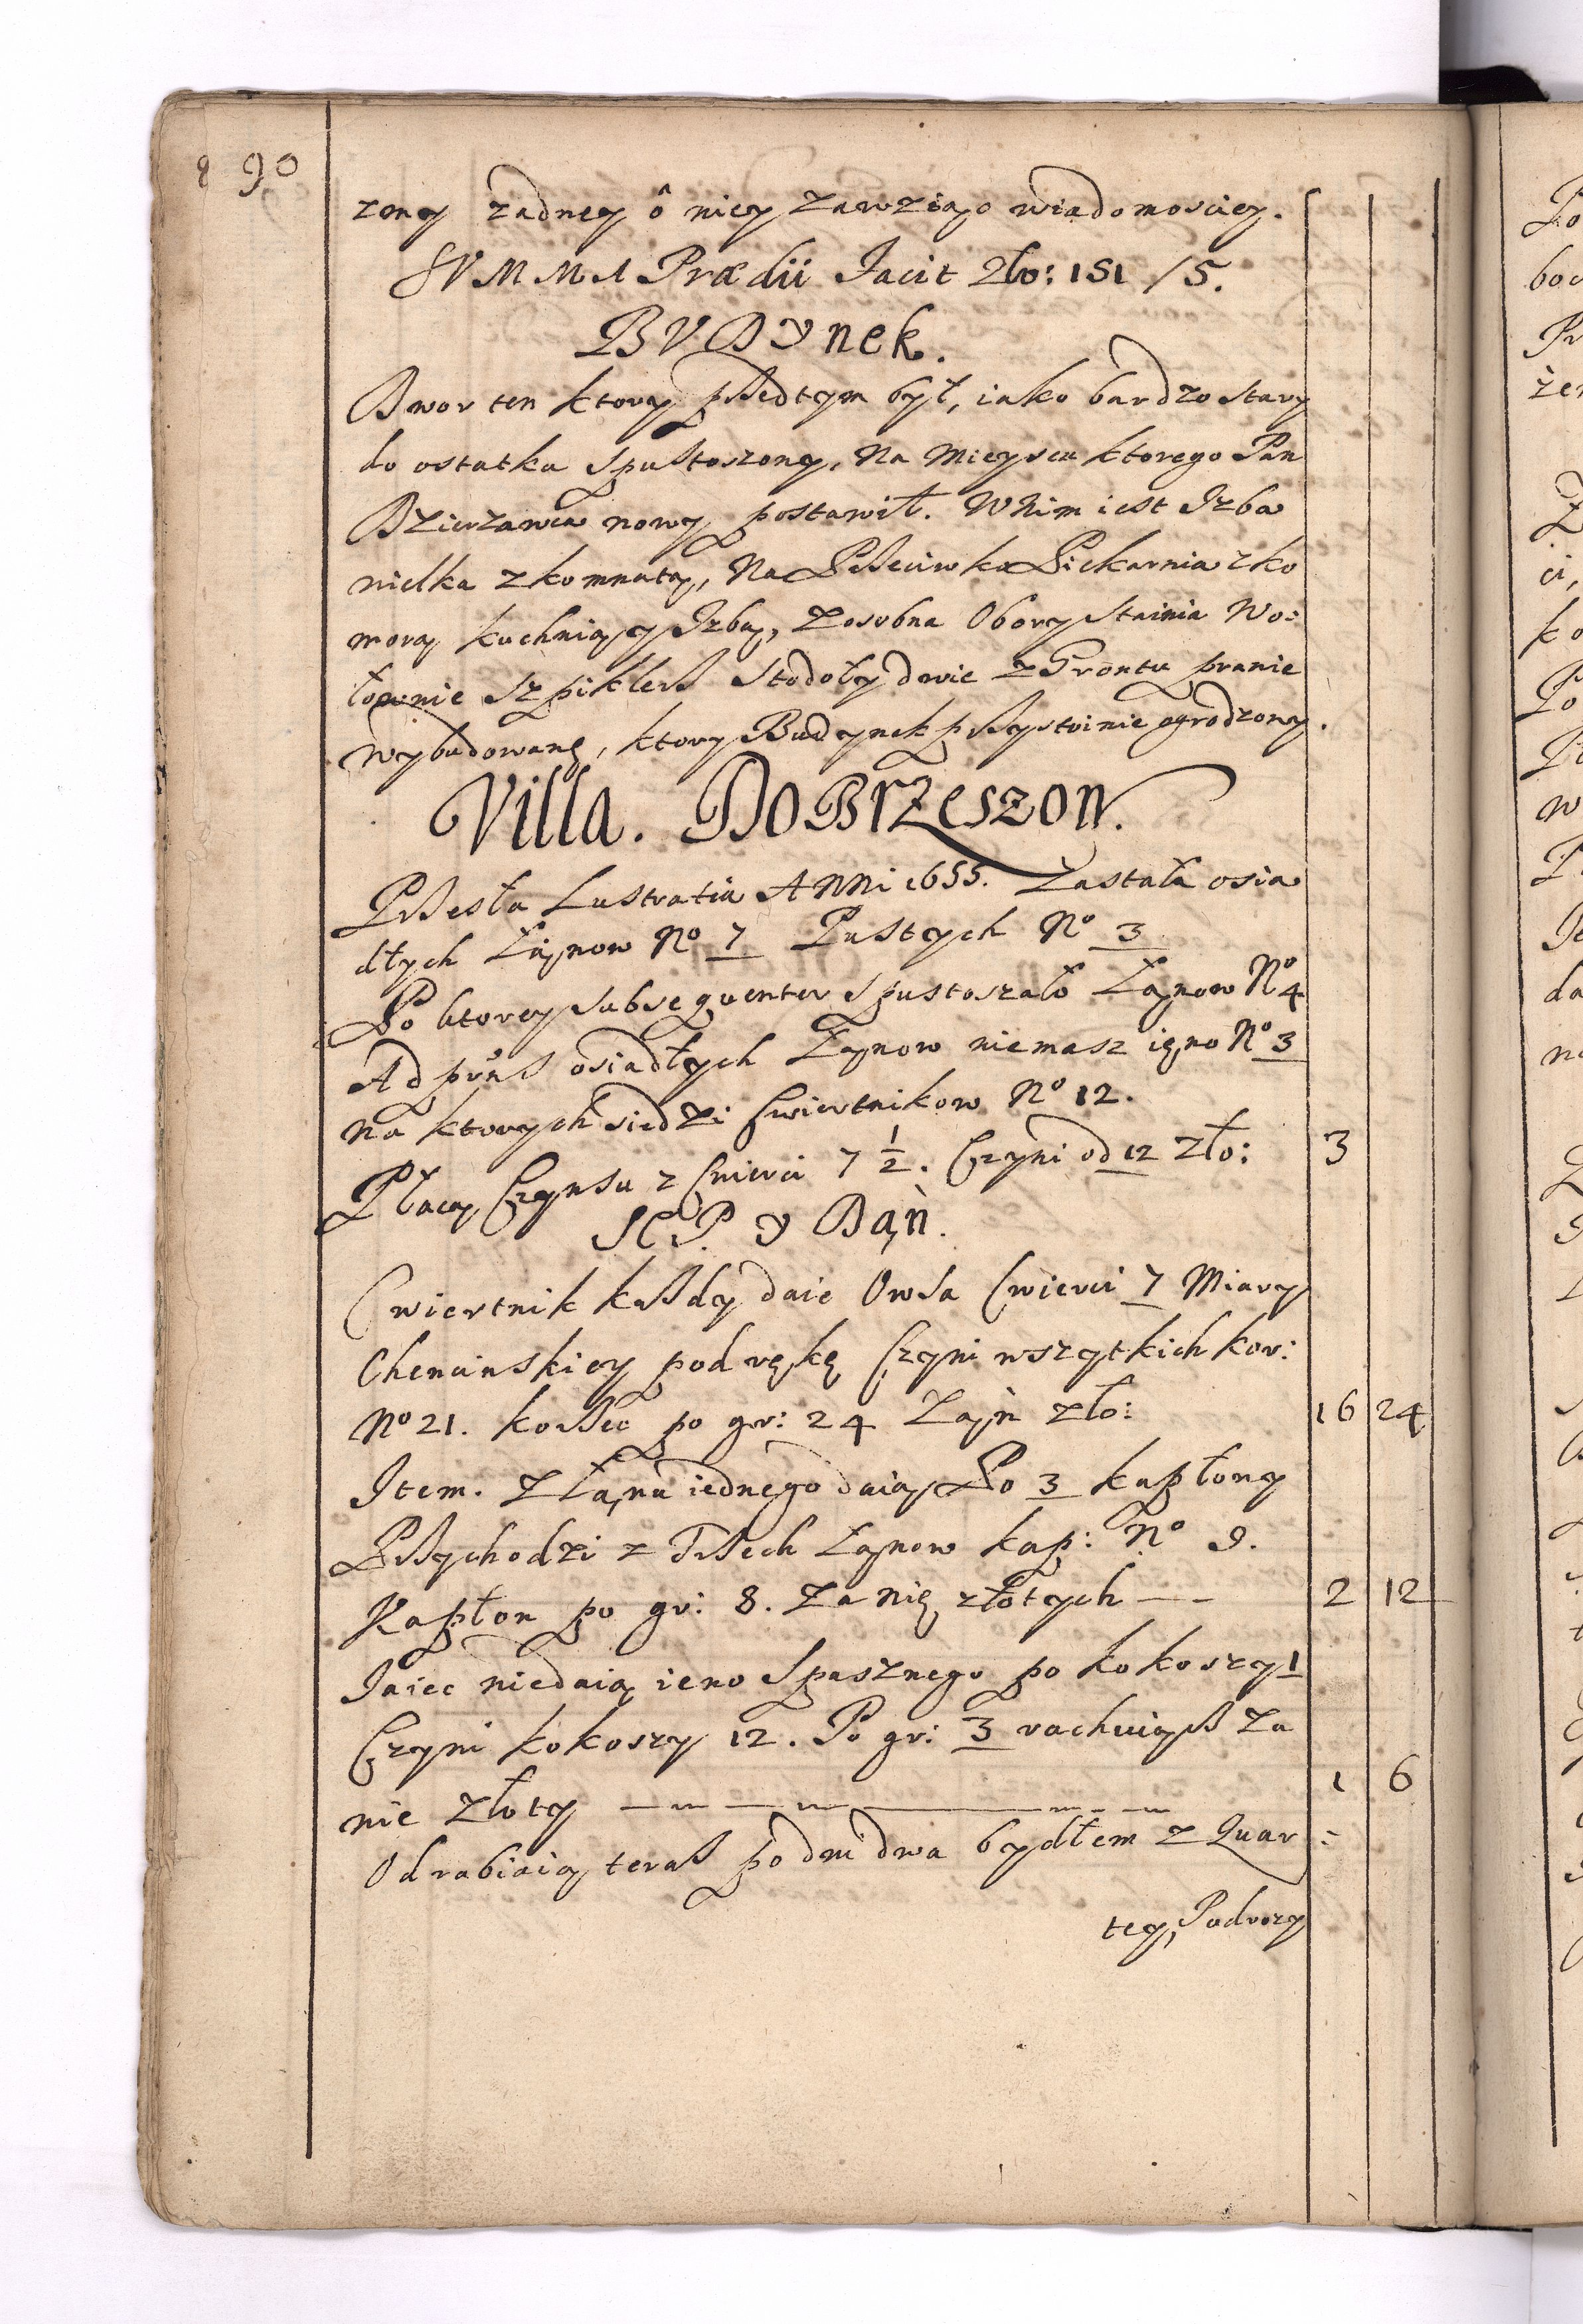 90
zony zadney ô niey zawzięto wiadomosciey.
SVMMA Prædii Facit Zło: 151 /5.
BVDYnek.
Dwor ten ktory pßedtym był, iako bardzo stary
do ostatka spustoszony, Na Mieyscu ktorego Pan
Dzierzawca nowy postawił. W Nim iest Izba
wielka z komnatą, Na Pßeciwko Piekarnia z ko
morą kuchnią y Izbą, Zosobna Obory Stainia Wo:
łownie Szpiklerß Stodoły dwie z Grontu prawie
wybudowane, ktory Budynek pßystoinie ogrodzony.
Villa. DoBrzeszow.
Pßesła Lustratia Anni 1655. Zastała osia
dłych Łanow No 7 Pustych No 3
Po ktorey subsequenter spustoszało Łanow No 4
Ad pṙnß osiadłych Łanow niemasz ieno No 3
na ktorych siedzi Cwiertnikow No 12.
Płacą Czynsu z Cwierci 7 1/2. Czyni od 12 Zło: 3
SEP y Dań.
Cwiertnik kaßdy daie Owsa Cwierci 7 Miary
Chencinskiey pod rękę Czyni wszytkich kor:
No 21. korßec po gr: 24 Zań zło: 16 24
Item. Z Łanu iednego daią Po 3 kapłony
Pßychodzi z Trßech Łanow kap: No 9.
Kapłon po gr: 8. Za nię złotych 2 12
Iaiec niedaią ieno Spasznego po kokoszy 1
Czyni kokoszy 12. Po gr: 3 rachuiąß za
nie złoty 1 6
Odrabiaią teraß po dni dwa bydłem z Quar:
tey, Podrozy